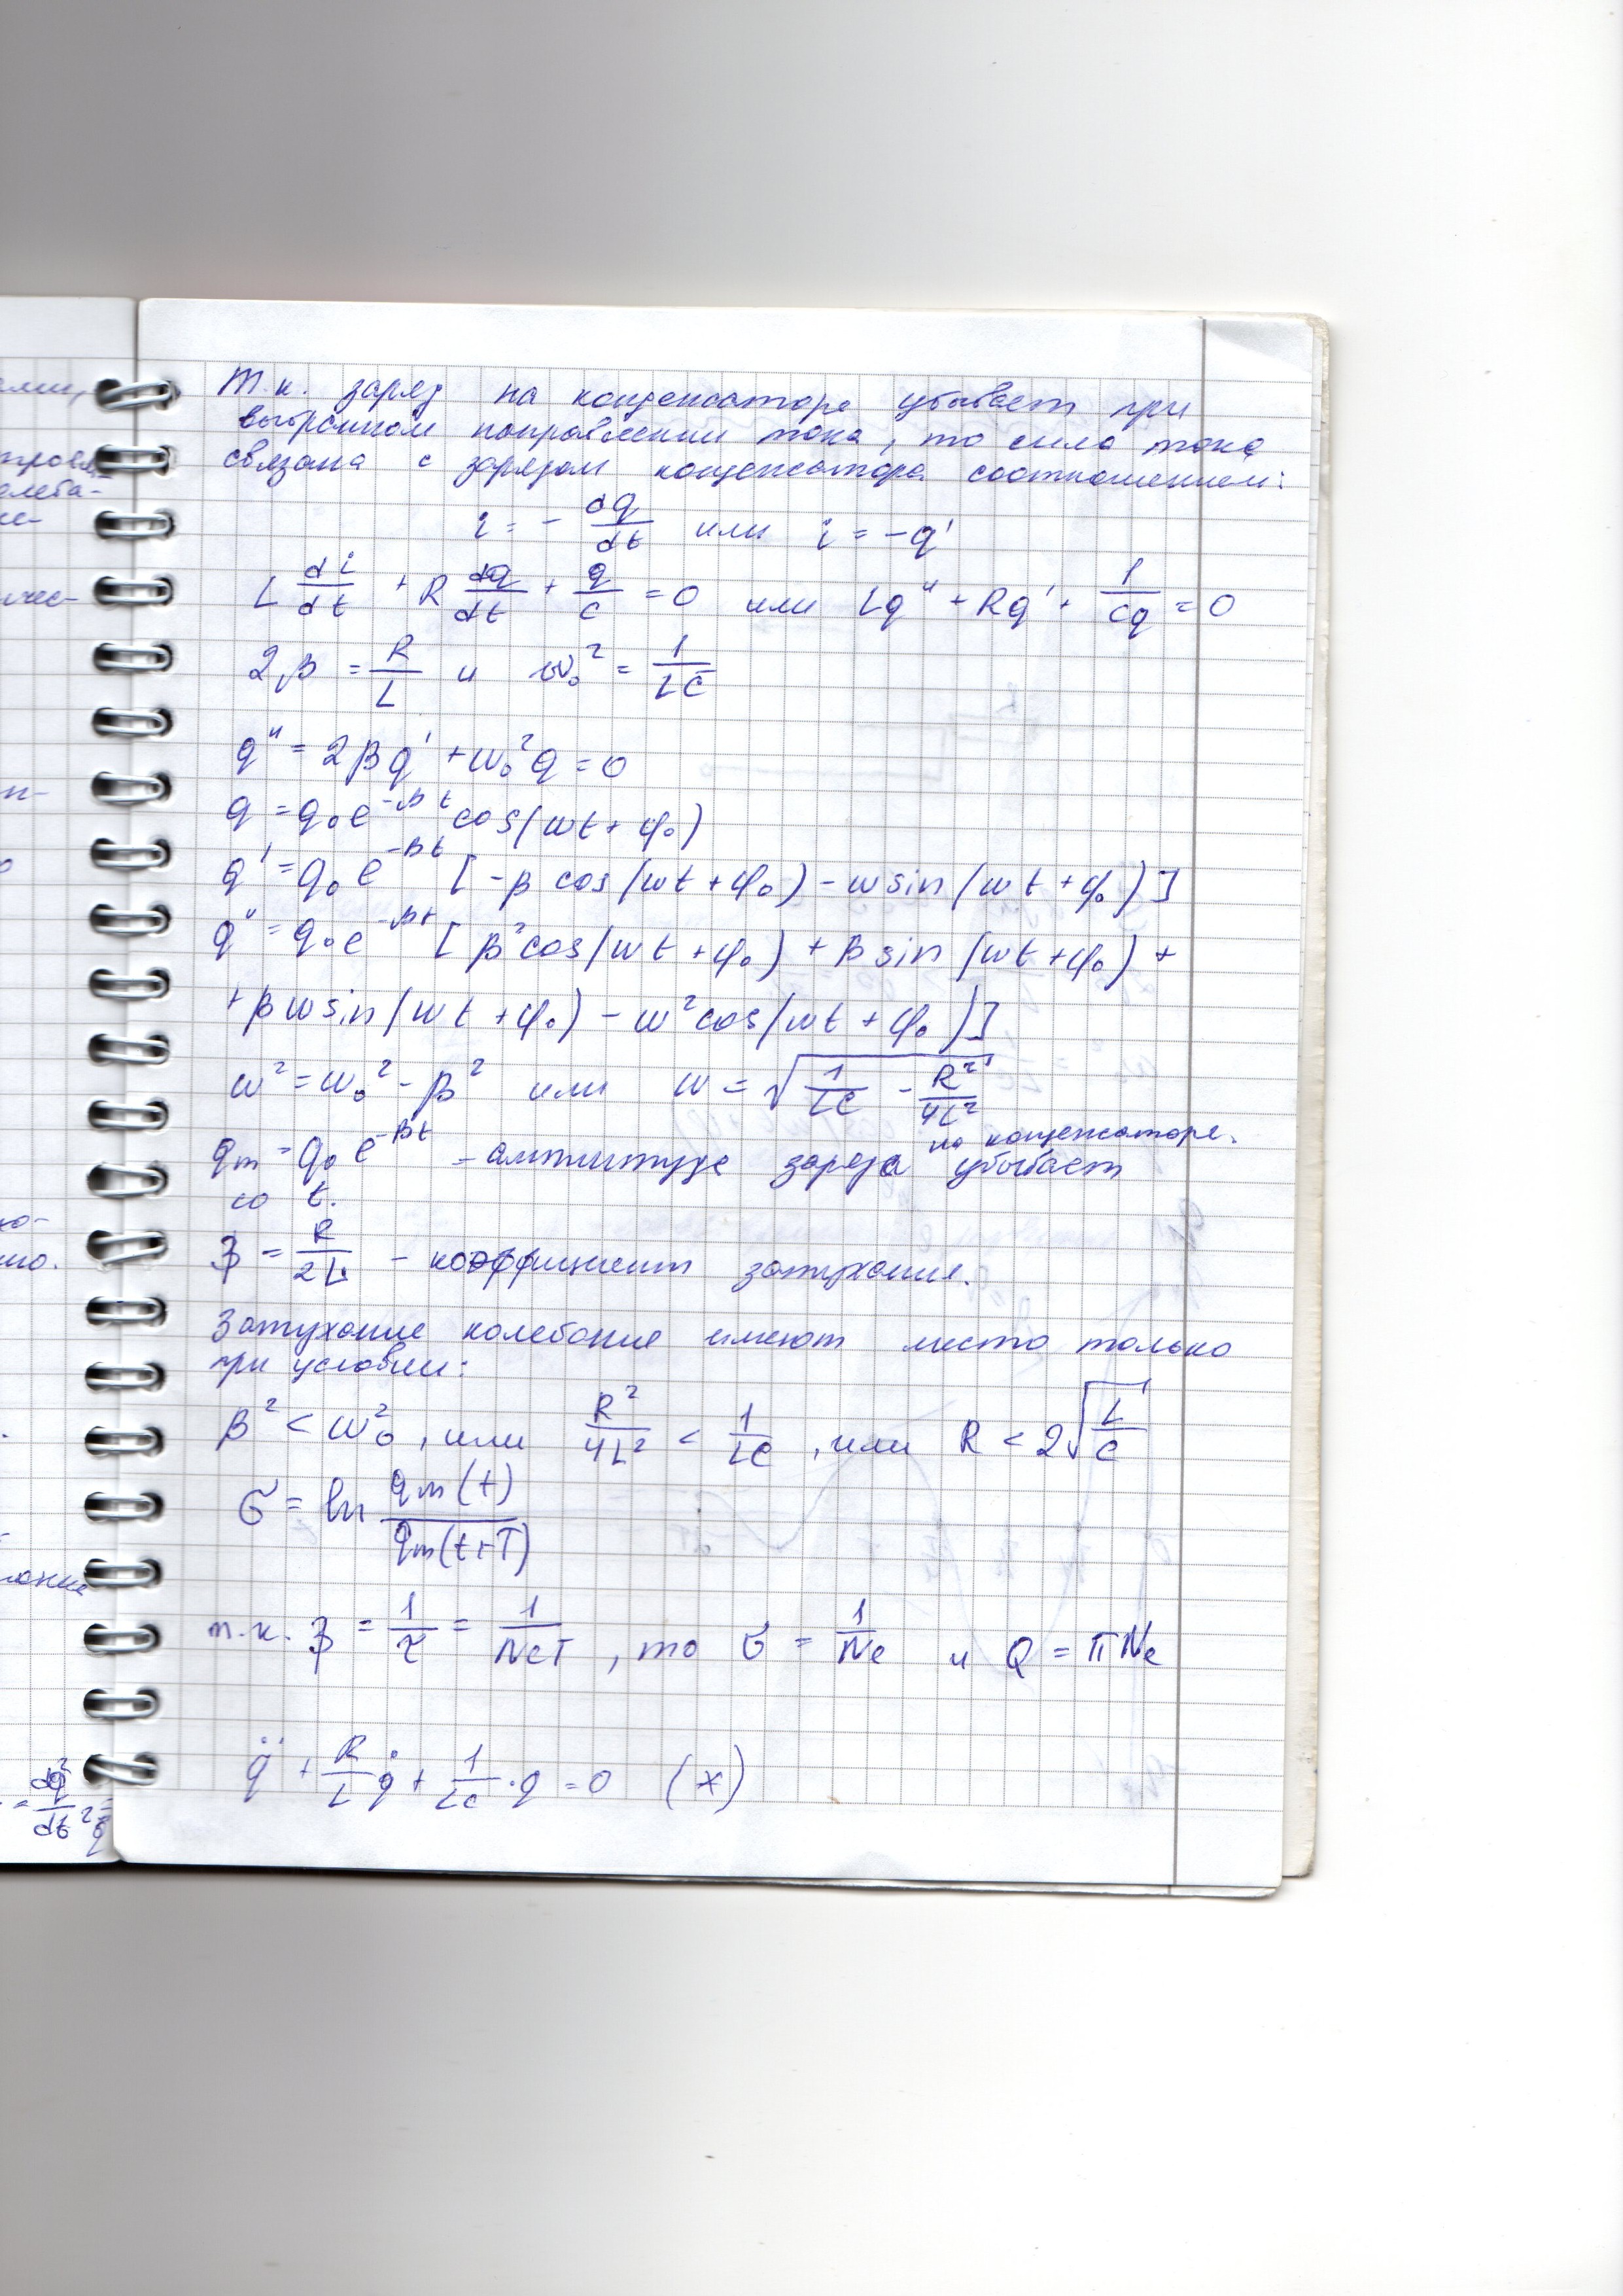 Т.к. заряд на конденсаторе убывает при
выбранном направлении тока, то сила тока
связана с зарядом конденсатора соотношением:
i = - dq/dt или i = -q'
L di/dt + R dq/dt + q/c = 0 или Lq'' + Rq' + 1/cq = 0
2β = R/L и ω₀² = 1/LC
q'' = 2βq' + ω₀²q = 0
q = q₀e^(-βt) cos(ωt + φ₀)
q' = q₀e^(-βt) [-β cos(ωt + φ₀) - ω sin(ωt + φ₀)]
q'' = q₀e^(-βt) [β²cos(ωt + φ₀) + β sin(ωt + φ₀) +
+ βω sin(ωt + φ₀) - ω²cos(ωt + φ₀)]
ω² = ω₀² - β² или ω = √(1/LC - R²/4L²)
на конденсаторе.
qm = q₀ e^(-βt) - амплитуда заряда убывает
со t.
β = R/2L - коэффициент затухания.
Затухание колебания имеют место только
при условии:
β² < ω₀², или R²/4L² < 1/LC, или R < 2√(L/C)
σ = ln qm(t)/qm(t+T)
т.к. β = 1/τ = 1/NeT, то σ = 1/Ne и Q = πNe
q̈ + R/L q̇ + 1/Lc · q = 0 (x)